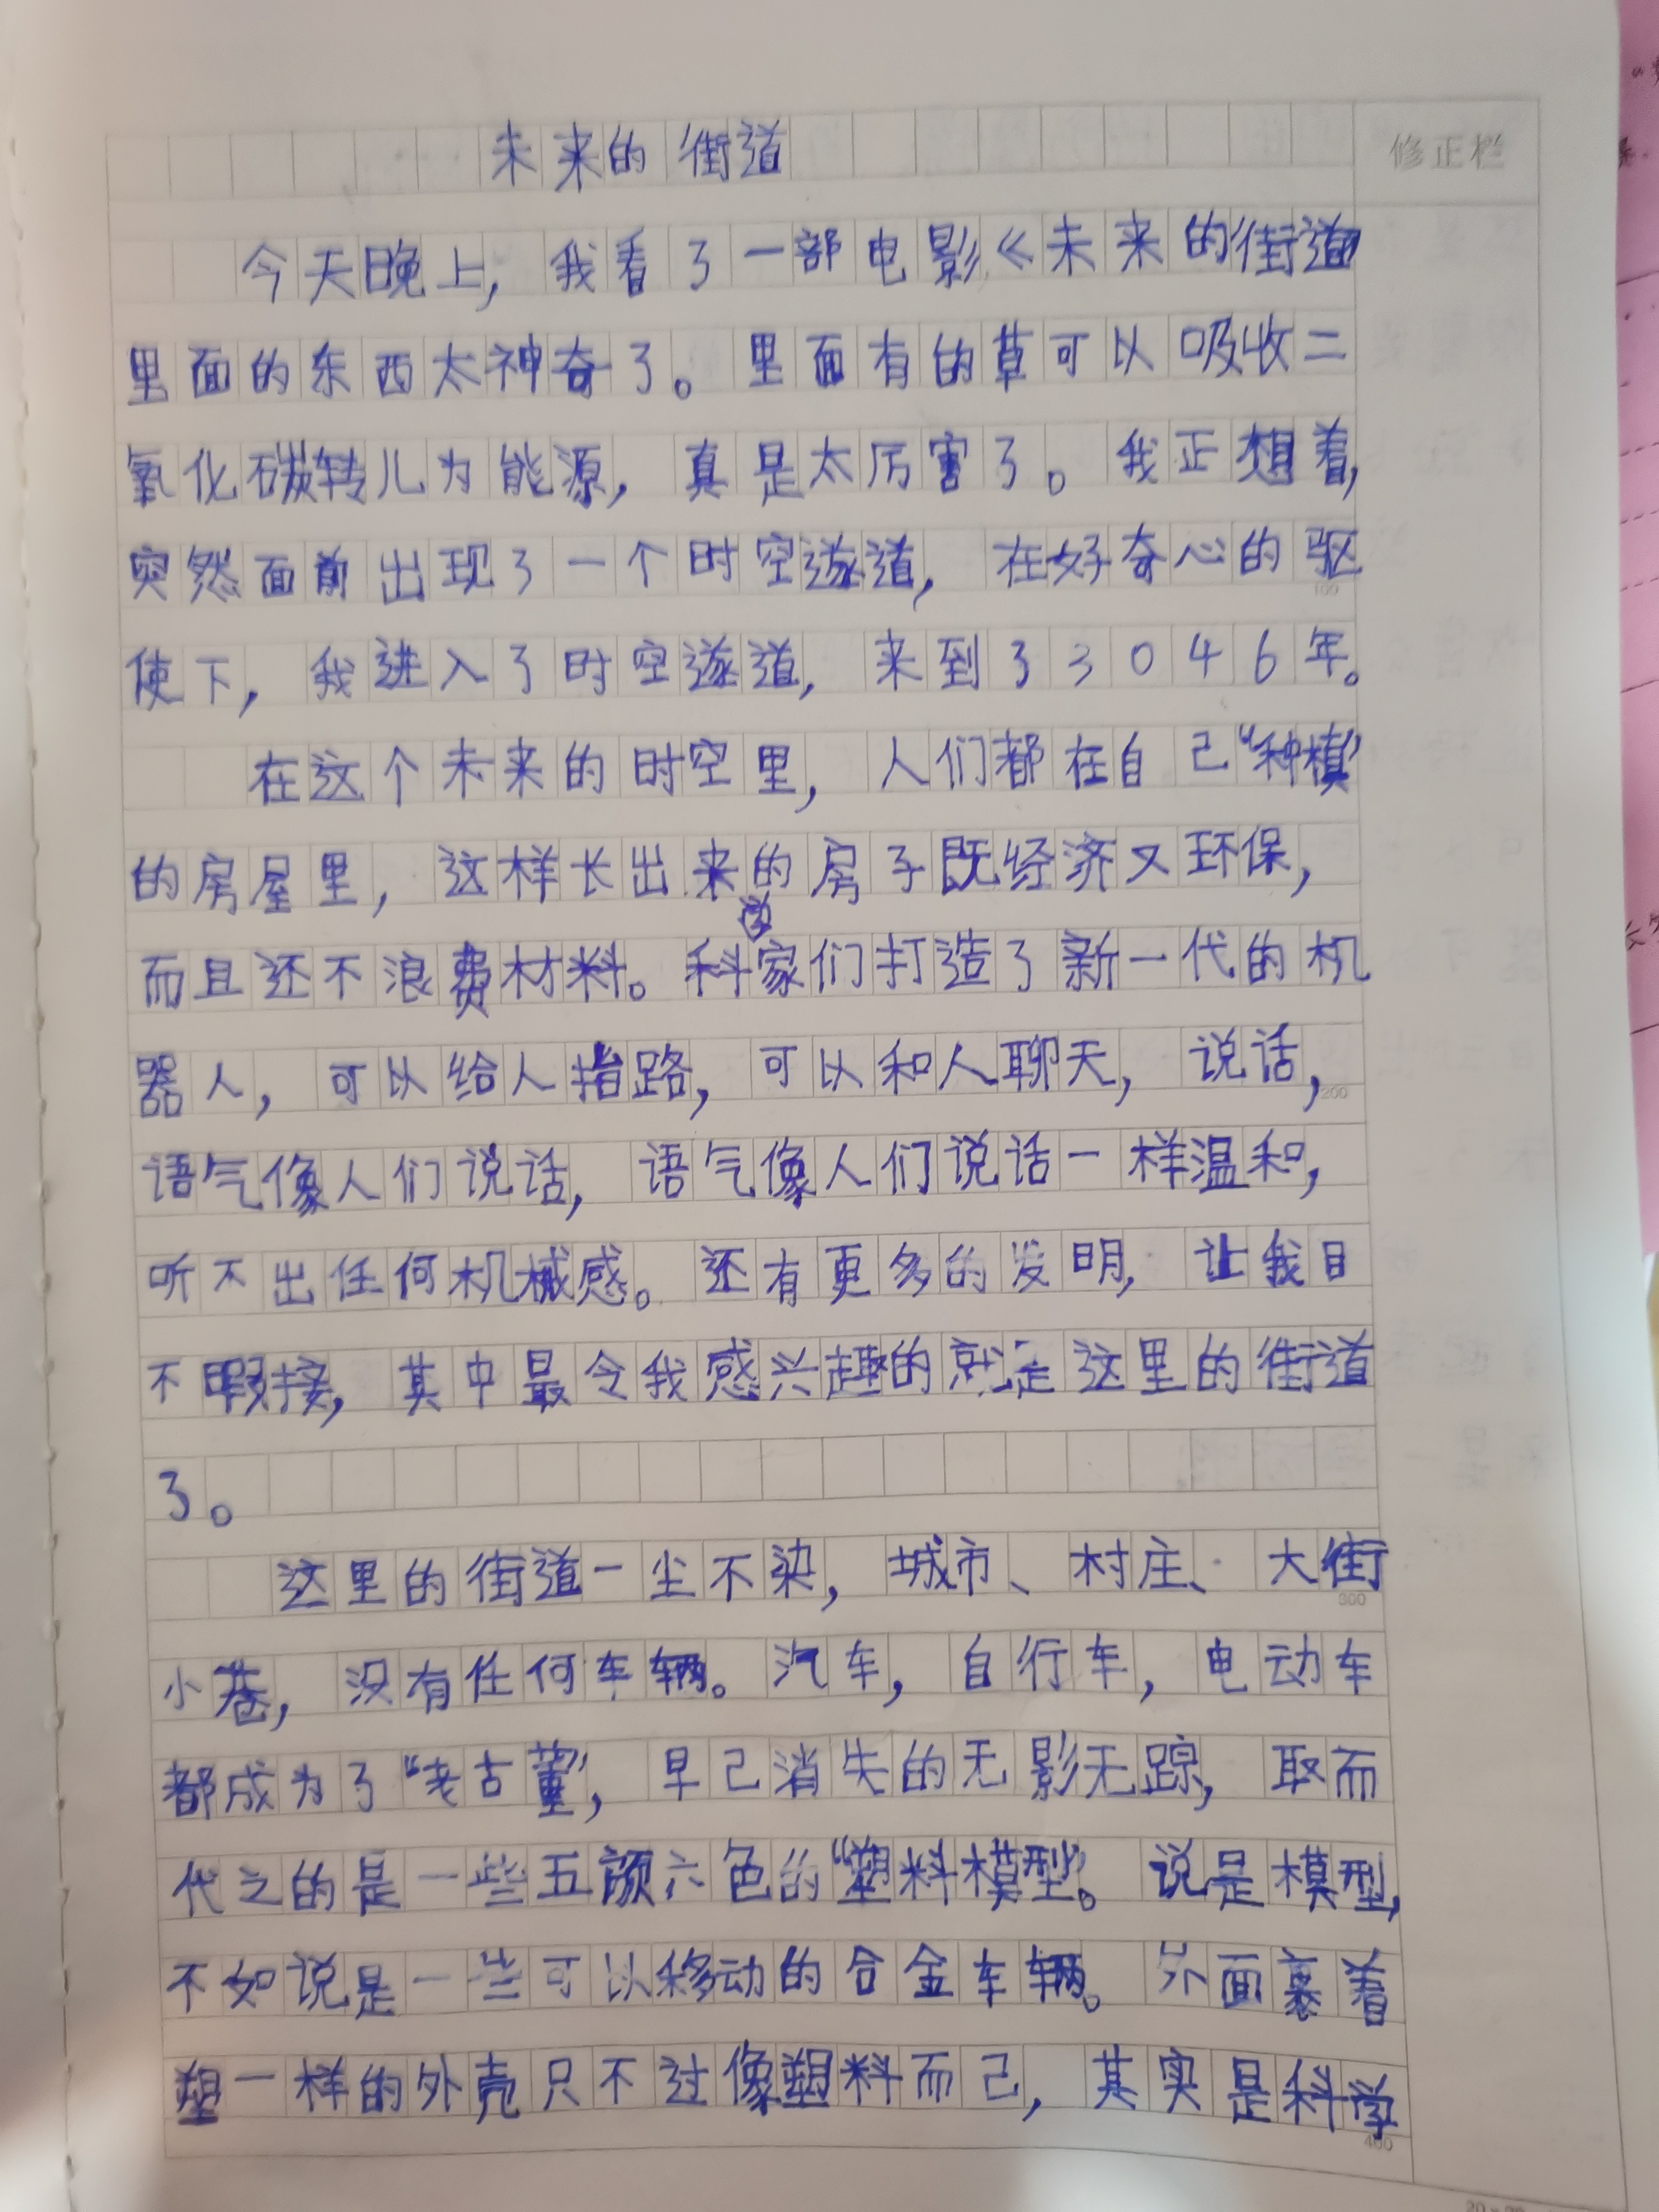 未来的街道
修正栏
今天晚上，我看了一部电影《未来的街道》
里面的东西太神奇了。里面有的草可以吸收二
氧化碳转儿为能源，真是太厉害了。我正想着，
突然面前出现了一个时空遂道，在好奇心的驱
100
使下，我进入了时空遂道，来到了3046年。
在这个未来的时空里，人们都在自己“种植”
的房屋里，这样长出来的房子既经济又环保，
而且还不浪费材料。科学家们打造了新一代的机
器人，可以给人指路，可以和人聊天，说话，
200
语气像人们说话，语气像人们说话一样温和，
听不出任何机械感。还有更多的发明，让我目
不暇接，其中最令我感兴趣的就是这里的街道
了。
这里的街道一尘不染，城市、村庄、大街
300
小巷，没有任何车辆。汽车，自行车，电动车
都成为了“老古董”，早己消失的无影无踪，取而
代之的是一些五颜六色的“塑料模型”。说是模型，
不如说是一些可以移动的合金车辆。外面裹着
塑一样的外壳只不过像塑料而己，其实是科学
400